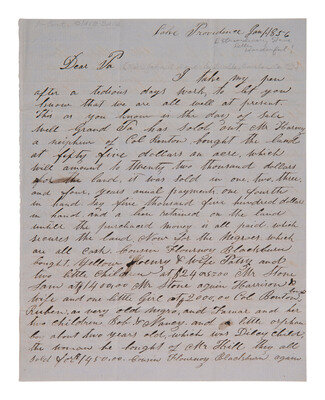 Lake Providence Jany 1856
Dear Pa
I take my pen
after a tedious days work, to let you
know that we are all well at present.
This as you know is the day of sale
well Grand Pa has sold out Mr Harvy
a nephew of Col Benton bought the land
at fifty five dollars an acre, which
will amount to twenty two thousand dollars
land it was sold in one two, three,
and four, years annual payments one fourth
in hand say five thousand five hundred dollars
in hand and a lien retained on the land
untill the purchased money is all paid which
secures the land. Now for the Negroes which
are all Cash. Cousin Flournoy Blackburn
bought Wellem & wife Patsy and
two little Children at $2405.00 Mr Stone
Sam at $1400.00 Mr Stone again Harrison &
wife and one little Girl at $2000.00 Col Benton,
Ruben, a very old negro, and Tamar and her
two children Bob & Nancy, and a little orphan
boy about two years old, which was
the woman he bought of Mr Hill they all
sold for $1450.00. Cousin Flournoy Blackburn again